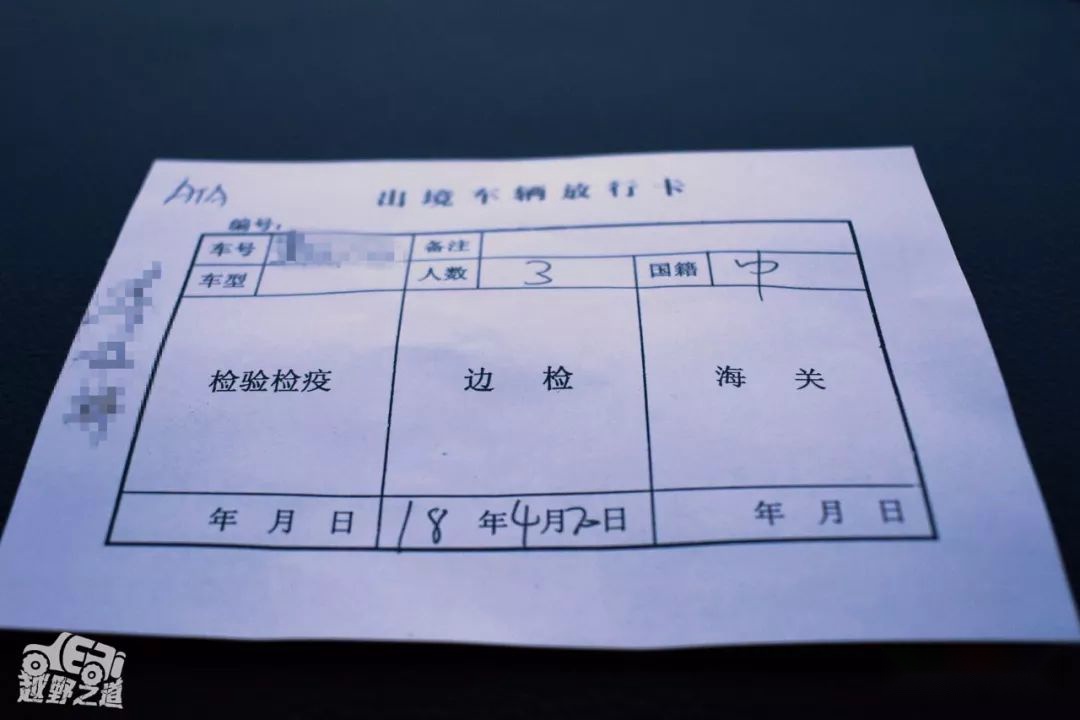 ATA
出境车辆放行卡
编号:
车号 备注
车型 人数 3 国籍 中
检验检疫 边检 海关
年 月 日 18 年 4 月 20 日 年 月 日
越野之道